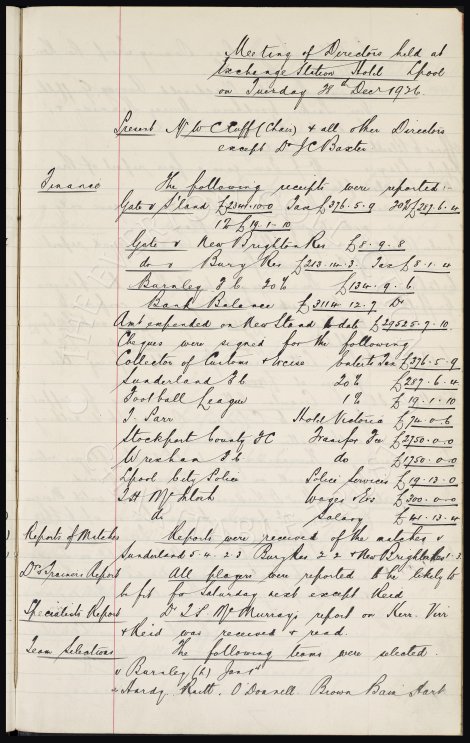 Meeting of Directors held at
Exchange Station Hotel Lpool
on Tuesday 28th Decr 1926.
Present Mr W C Cuff (Chair) & all other Directors
except Dr J C Baxter
Finance The following receipts were reported:-
Gate v S'land £2341-10-0 Tax £376-5-9 20% £287-6-4
1% £19-1-10
Gate v New Brighton Res £8-9-8
do v Bury Res £213-14-3 Tax £8-1-4
Burnley F C 20% £134-9-6
Bank Balance £3114-12-7 Dr
Amt expended on New Stand to date £29525-7-10.
Cheques were signed for the following
Collector of Customs & Excise Enterts Tax £376-5-9
Sunderland F C 20% £287-6-4
Football League 1% £19-1-10
J. Parr Hotel Victoria £74-0-6
Stockport County FC Transfer Fee £2750-0-0
Wrexham F C do £1750-0-0
Lpool City Police Police Services £19-13-0
T. H. McIntosh Wages & Exs £300-0-0
do Salary £41-13-4
Reports of Matches Reports were received of the matches v
Sunderland 5-4. 2 3 Bury Res 2 2 & New Brighton Res 1-3.
Dr's & Trainers Report All players were reported to be likely to
be fit for Saturday next except Reid
Specialists Report Dr T. P. McMurray's report on Kerr. Virr
& Reid was received & read.
Team Selections The following teams were selected.
v Burnley (h) Jan 1st
Hardy. Raitt. O'Donnell. Brown Bain Hart